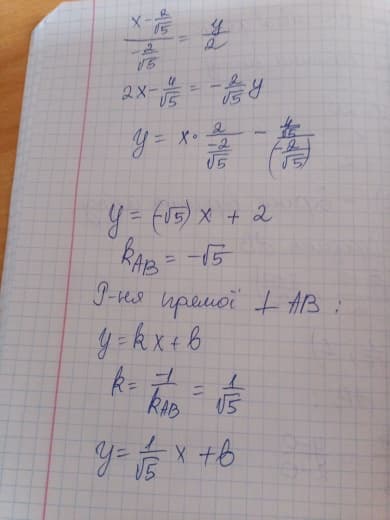 (x - 2/√5)/(-2/√5) = y/2
2x - 4/√5 = -2/√5 y
y = x · 2/(-2/√5) - (4/√5)/(-2/√5)
y = (-√5) x + 2
k_AB = -√5
Р-ня прямої ⊥ AB :
y = kx + b
k = -1/k_AB = 1/√5
y = 1/√5 x + b